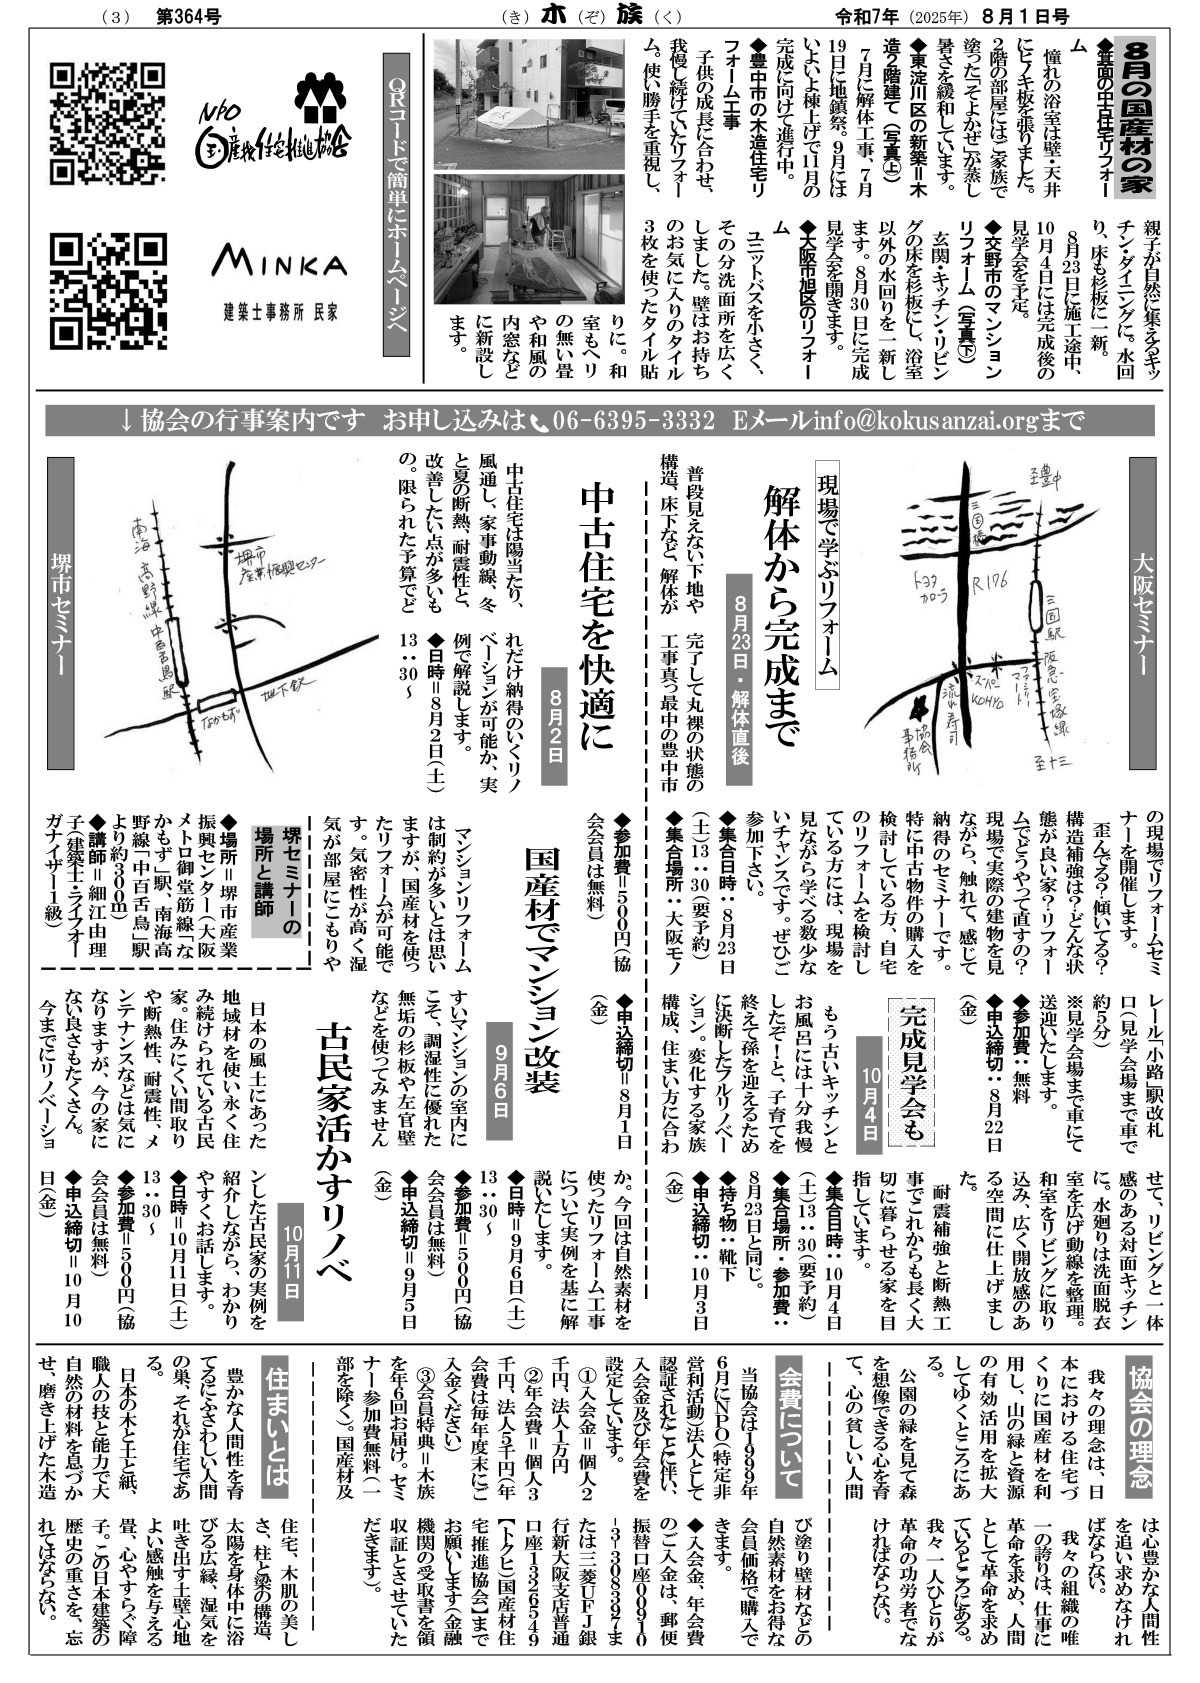 (3) 第364号
(き) 木 (ぞ) 族 (く)
令和7年 (2025年) 8月1日号
8月の国産材の家
◆箕面の中古住宅リフォー
ム
憧れの浴室は壁・天井
にヒノキ板を張りました。
2階の部屋にはご家族で
塗った「そよかぜ」が蒸し
暑さを緩和しています。
◆東淀川区の新築=木
造2階建て(写真㊤)
7月に解体工事、7月
19日に地鎮祭。9月には
いよいよ棟上げで11月の
完成に向けて進行中。
◆豊中市の木造住宅リ
フォーム工事
子供の成長に合わせ、
我慢し続けていたリフォー
ム。使い勝手を重視し、
親子が自然に集えるキッ
チン・ダイニングに。水回
り、床も杉板に一新。
8月23日に施工途中、
10月4日には完成後の
見学会を予定。
◆交野市のマンション
リフォーム(写真㊦)
玄関・キッチン・リビン
グの床を杉板にし、浴室
以外の水回りを一新し
ます。8月30日に完成
見学会を開きます。
◆大阪市旭区のリフォー
ム
ユニットバスを小さく、
その分洗面所を広く
しました。壁はお持ち
のお気に入りのタイル
3枚を使ったタイル貼
りに。和
室もヘリ
の無い畳
や和風の
内窓など
に新設し
ます。
QRコードで簡単にホームページへ
NPO
国産材住宅推進協会
MINKA
建築士事務所 民家
↓協会の行事案内です お申し込みは📞06-6395-3332 Eメールinfo@kokusanzai.orgまで
大阪セミナー
至豊中
三国橋
トヨタ
カローラ
R176
三国駅
阪急宝塚線
ファミリー
マート
スーパー
KOHYO
流れ寿司
協会
事務所
至十三
現場で学ぶリフォーム
解体から完成まで
8月23日・解体直後
普段見えない下地や
構造、床下など、解体が
完了して丸裸の状態の
工事真っ最中の豊中市
の現場でリフォームセミ
ナーを開催します。
歪んでる?傾いてる?
構造補強は?どんな状
態が良い家?リフォー
ムでどうやって直すの?
現場で実際の建物を見
ながら、触れて、感じて
納得のセミナーです。
特に中古物件の購入を
検討している方、自宅
のリフォームを検討し
ている方には、現場を
見ながら学べる数少な
いチャンスです。ぜひご
参加下さい。
◆集合日時:8月23日
(土)13:30(要予約)
◆集合場所:大阪モノ
レール「小路」駅改札
口(見学会場まで車で
約5分)
※見学会場まで車にて
送迎いたします。
◆参加費:無料
◆申込締切:8月22日
(金)
完成見学会も
10月4日
もう古いキッチンと
お風呂には十分我慢
したぞ!と、子育てを
終えて孫を迎えるため
に決断したフルリノベー
ション。変化する家族
構成、住まい方に合わ
せて、リビングと一体
感のある対面キッチン
に。水廻りは洗面脱衣
室を広げ動線を整理。
和室をリビングに取り
込み、広く開放感のあ
る空間に仕上げまし
た。
耐震補強と断熱工
事でこれからも長く大
切に暮らせる家を目
指しています。
◆集合日時:10月4日
(土)13:30(要予約)
◆集合場所・参加費:
8月23日と同じ。
◆持ち物:靴下
◆申込締切:10月3日
(金)
中古住宅を快適に
8月2日
中古住宅は陽当たり、
風通し、家事動線、冬
と夏の断熱、耐震性と、
改善したい点が多いも
の。限られた予算でど
れだけ納得のいくリノ
ベーションが可能か、実
例で解説します。
◆日時=8月2日(土)
13:30~
◆参加費=500円(協
会会員は無料)
◆申込締切=8月1日
(金)
国産材でマンション改装
9月6日
マンションリフォーム
は制約が多いとは思い
ますが、国産材を使っ
たリフォームが可能で
す。気密性が高く湿
気が部屋にこもりや
すいマンションの室内に
こそ、調湿性に優れた
無垢の杉板や左官壁
などを使ってみません
か。今回は自然素材を
使ったリフォーム工事
について実例を基に解
説いたします。
◆日時=9月6日(土)
13:30~
◆参加費=500円(協
会会員は無料)
◆申込締切=9月5日
(金)
堺市セミナー
南海高野線中百舌鳥駅
堺市
産業振興センター
なかもず
地下鉄
堺セミナーの
場所と講師
◆場所=堺市産業
振興センター(大阪
メトロ御堂筋線「な
かもず」駅、南海高
野線「中百舌鳥」駅
より約300m)
◆講師=細江由理
子(建築士・ライフオー
ガナイザー1級)
古民家活かすリノベ
10月11日
日本の風土にあった
地域材を使い永く住
み続けられている古民
家。住みにくい間取り
や断熱性、耐震性、メ
ンテナンスなどは気に
なりますが、今の家に
ない良さもたくさん。
今までにリノベーショ
ンした古民家の実例を
紹介しながら、わかり
やすくお話します。
◆日時=10月11日(土)
13:30~
◆参加費=500円(協
会会員は無料)
◆申込締切=10月10
日(金)
協会の理念
我々の理念は、日
本における住宅づ
くりに国産材を利
用し、山の緑と資源
の有効活用を拡大
してゆくところにあ
る。
公園の緑を見て森
を想像できる心を育
て、心の貧しい人間
は心豊かな人間性
を追い求めなけれ
ばならない。
我々の組織の唯
一の誇りは、仕事に
革命を求め、人間
として革命を求め
ているところにある。
我々一人ひとりが
革命の功労者でな
ければならない。
会費について
当協会は1999年
6月にNPO(特定非
営利活動)法人として
認証されたことに伴い、
入会金及び年会費を
設定しています。
①入会金=個人2
千円、法人1万円
②年会費=個人3
千円、法人5千円(年
会費は毎年度末にご
入金ください)
③会員特典=木族
を年6回お届け。セミ
ナー参加費無料(一
部を除く)。国産材及
び塗り壁材などの
自然素材をお得な
会員価格で購入で
きます。
◆入会金、年会費
のご入金は、郵便
振替口座00910
-3-308387ま
たは三菱UFJ銀
行新大阪支店普通
口座1326549
【トクヒ)国産材住
宅推進協会】まで
お願いします(金融
機関の受取書を領
収証とさせていた
だきます)。
住まいとは
豊かな人間性を育
てるにふさわしい人間
の巣、それが住宅であ
る。
日本の木と土と紙、
職人の技と能力で大
自然の材料を息づか
せ、磨き上げた木造
住宅、木肌の美し
さ、柱と梁の構造、
太陽を身体中に浴
びる広縁、湿気を
吐き出す土壁、心地
よい感触を与える
畳、心やすらぐ障
子。この日本建築の
歴史の重さを、忘
れてはならない。